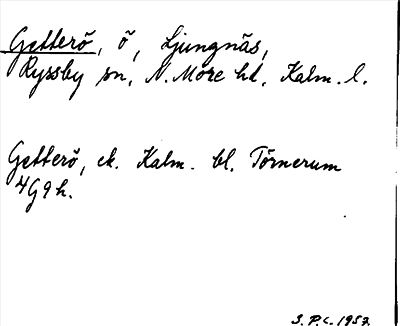 Getterö, ö, Ljungnäs,
Ryssby sn, N. Möre hd, Kalm. l.
Getterö, ek. Kalm. bl. Törnerum
4G9h.
S.P.C. 1957.